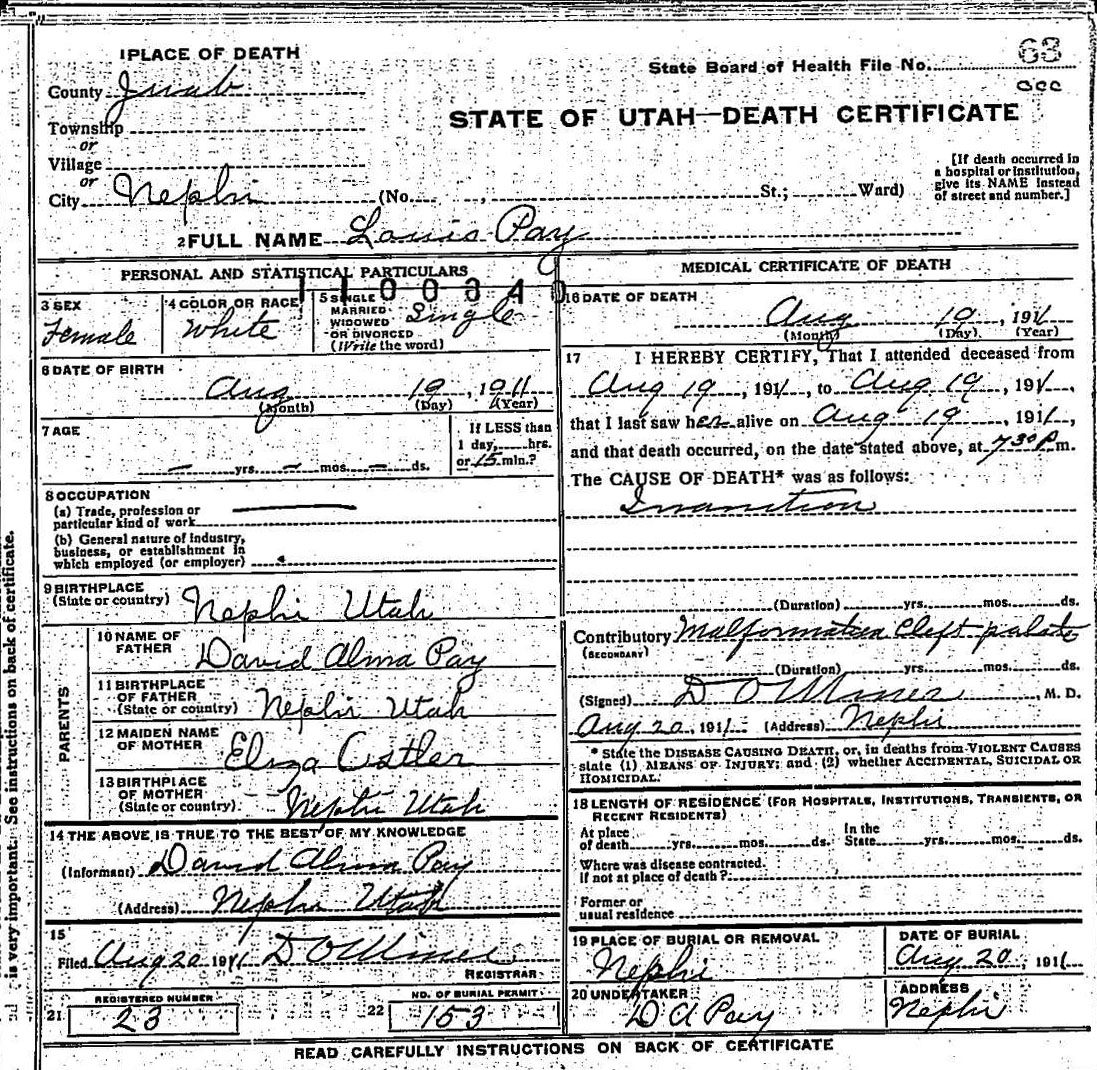 1 PLACE OF DEATH
County Juab
Township
or
Village
or
City Nephi (No. , St.; Ward)
State Board of Health File No. 63
STATE OF UTAH—DEATH CERTIFICATE
[If death occurred in
a hospital or institution,
give its NAME instead
of street and number.]
2 FULL NAME Louis Pay
PERSONAL AND STATISTICAL PARTICULARS
1100340
3 SEX
Female
4 COLOR OR RACE
White
5 SINGLE
MARRIED
WIDOWED
OR DIVORCED
(Write the word)
Single
6 DATE OF BIRTH
Aug 19, 1911
(Month) (Day) (Year)
7 AGE
— yrs. — mos. — ds.
If LESS than
1 day, hrs.
or 15 min.?
8 OCCUPATION
(a) Trade, profession or
particular kind of work
(b) General nature of industry,
business, or establishment in
which employed (or employer)
9 BIRTHPLACE
(State or country) Nephi Utah
PARENTS
10 NAME OF
FATHER
David Alma Pay
11 BIRTHPLACE
OF FATHER
(State or country) Nephi Utah
12 MAIDEN NAME
OF MOTHER
Eliza Ostler
13 BIRTHPLACE
OF MOTHER
(State or country) Nephi Utah
14 THE ABOVE IS TRUE TO THE BEST OF MY KNOWLEDGE
(Informant) David Alma Pay
(Address) Nephi Utah
15
Filed Aug 20 1911 D O Miner
REGISTRAR
REGISTERED NUMBER
21 23
NO. OF BURIAL PERMIT
22 153
MEDICAL CERTIFICATE OF DEATH
16 DATE OF DEATH
Aug 19, 1911
(Month) (Day) (Year)
17 I HEREBY CERTIFY, That I attended deceased from
Aug 19, 1911, to Aug 19, 1911,
that I last saw her alive on Aug 19, 1911,
and that death occurred, on the date stated above, at 7 30 P m.
The CAUSE OF DEATH* was as follows:
Inanition
(Duration) yrs. mos. ds.
Contributory Malformation Cleft palate
(SECONDARY)
(Duration) yrs. mos. ds.
(Signed) D O Miner, M. D.
Aug 20, 1911 (Address) Nephi
* State the DISEASE CAUSING DEATH, or, in deaths from VIOLENT CAUSES
state (1) MEANS OF INJURY; and (2) whether ACCIDENTAL, SUICIDAL OR
HOMICIDAL.
18 LENGTH OF RESIDENCE (FOR HOSPITALS, INSTITUTIONS, TRANSIENTS, OR
RECENT RESIDENTS)
At place
of death yrs. mos. ds.
In the
State yrs. mos. ds.
Where was disease contracted.
If not at place of death?
Former or
usual residence
19 PLACE OF BURIAL OR REMOVAL
Nephi
DATE OF BURIAL
Aug 20, 1911
20 UNDERTAKER
D A Pay
ADDRESS
Nephi
READ CAREFULLY INSTRUCTIONS ON BACK OF CERTIFICATE
is very important. See instructions on back of certificate.